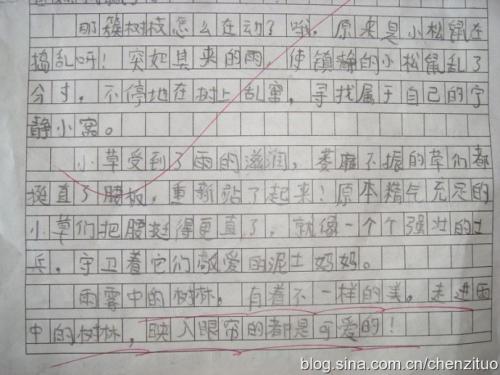 那簇树枝怎么在动？哦，原来是小松鼠在
捣乱呀！突如其来的雨，使镇静的小松鼠乱了
分寸，不停地在树上乱窜，寻找属于自己的宁
静小窝。
小草受到了雨的滋润，萎靡不振的草们都
挺直了腰板，重新站了起来！原本精气充足的
小草们把腰挺得更直了，就像一个个强壮的士
兵，守卫着它们敬爱的泥土妈妈。
雨雾中的树林，有着不一样的美，走进雨
中的树林，映入眼帘的都是可爱的！
blog.sina.com.cn/chenzituo